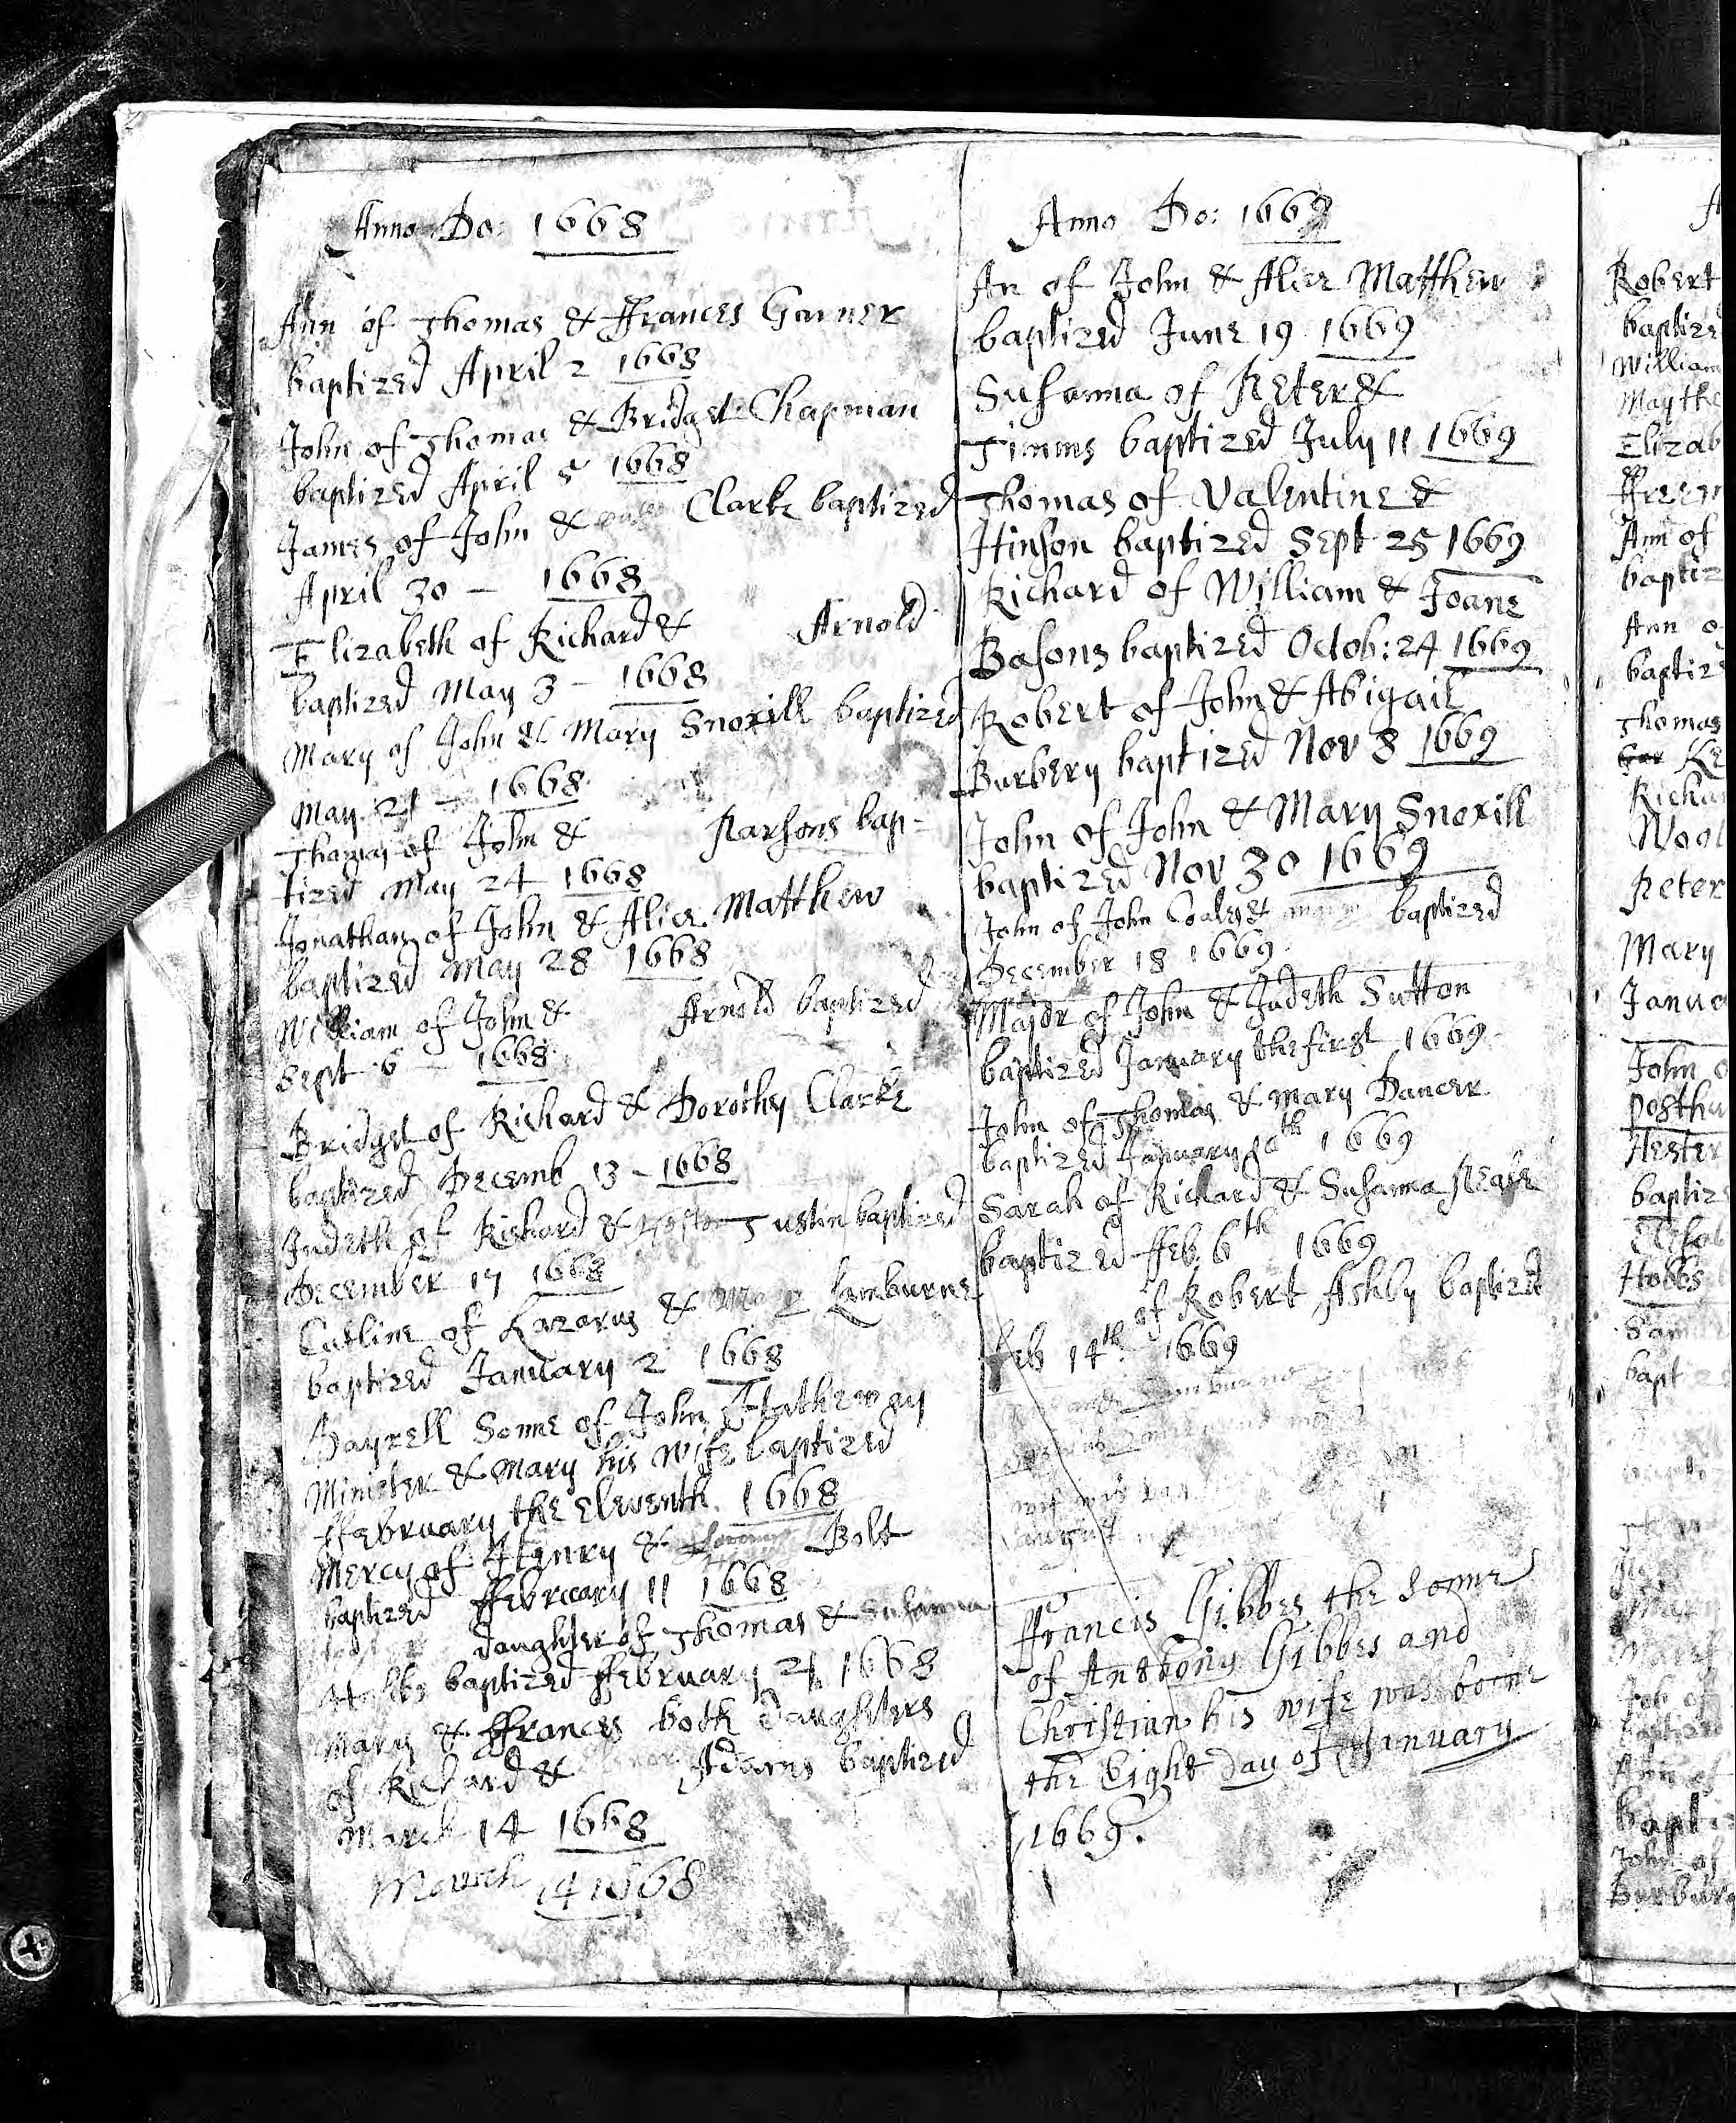 Anno Do: 1668
Ann of Thomas & Frances Garner
baptized April 2 1668
John of Thomas & Bridget Chapman
baptized April 5 1668
James of John & Clarke baptized
April 30 - 1668
Elizabeth of Richard & Arnold
baptized May 3 - 1668
Mary of John & Mary Snoxill baptized
May 21 - 1668
Thomas of John & Parsons bap-
tized May 24 1668
Jonathan of John & Alice Matthew
baptized May 28 1668
William of John & Arnold baptized
Sept 6 - 1668
Bridget of Richard & Dorothy Clarke
baptized Decemb 13 - 1668
Judeth of Richard & Justin baptized
December 17 1668
Catline of Lazarus & Lamburne
baptized January 2 1668
Hayrell Sonne of John Hatheway
Minister & Mary his wife baptized
ffebruary the Eleventh 1668
Mercy of Henry & Bolt
baptized ffebruary 11 1668
daughter of Thomas & Susanna
Hobbs baptized ffebruary 21 1668
Mary & ffrances both daughters
of Richard & Adams baptized
March 14 1668
March 14 1668
Anno Do: 1669
An of John & Alice Matthew
baptized June 19 1669
Susanna of Peter &
Timms baptized July 11 1669
Thomas of Valentine &
Hinson baptized Sept 25 1669
Richard of William & Joane
Basons baptized Octob: 24 1669
Robert of John & Abigail
Burbery baptized Nov 8 1669
John of John & Mary Snoxill
baptized Nov 30 1669
John of John Coales & baptized
December 18 1669
Major of John & Judeth Sutton
baptized January the first 1669
John of Thomas & Mary Dancer
baptized January 1669
Sarah of Richard & Susanna
baptized ffeb. 6th 1669
of Robert Ashby baptized
feb 14th 1669
ffrancis Gibbes the Sonne
of Anthony Gibbes and
Christian his wife was borne
the Eight day of January
1669.
Robert
baptize
William
Elizab
Ann of
baptiz
Ann o
baptiz
Thomas
Richa
Wool
Peter
Mary
Janua
John o
posthu
Hester
baptiz
Hobbs
bapti
John of
Burbury